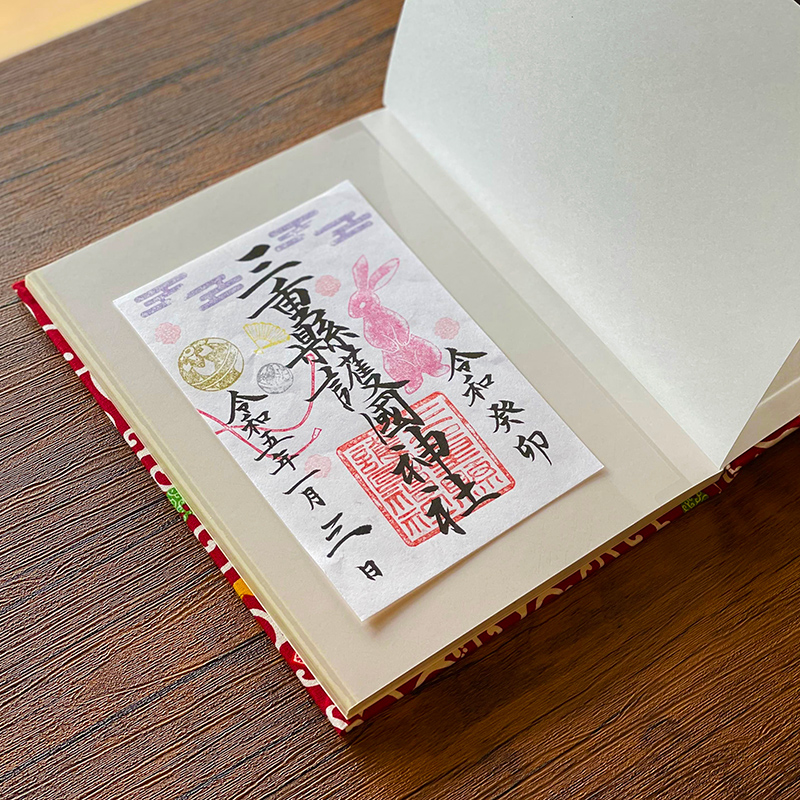 令和 癸卯
三重縣護國神社
令和五年一月三日